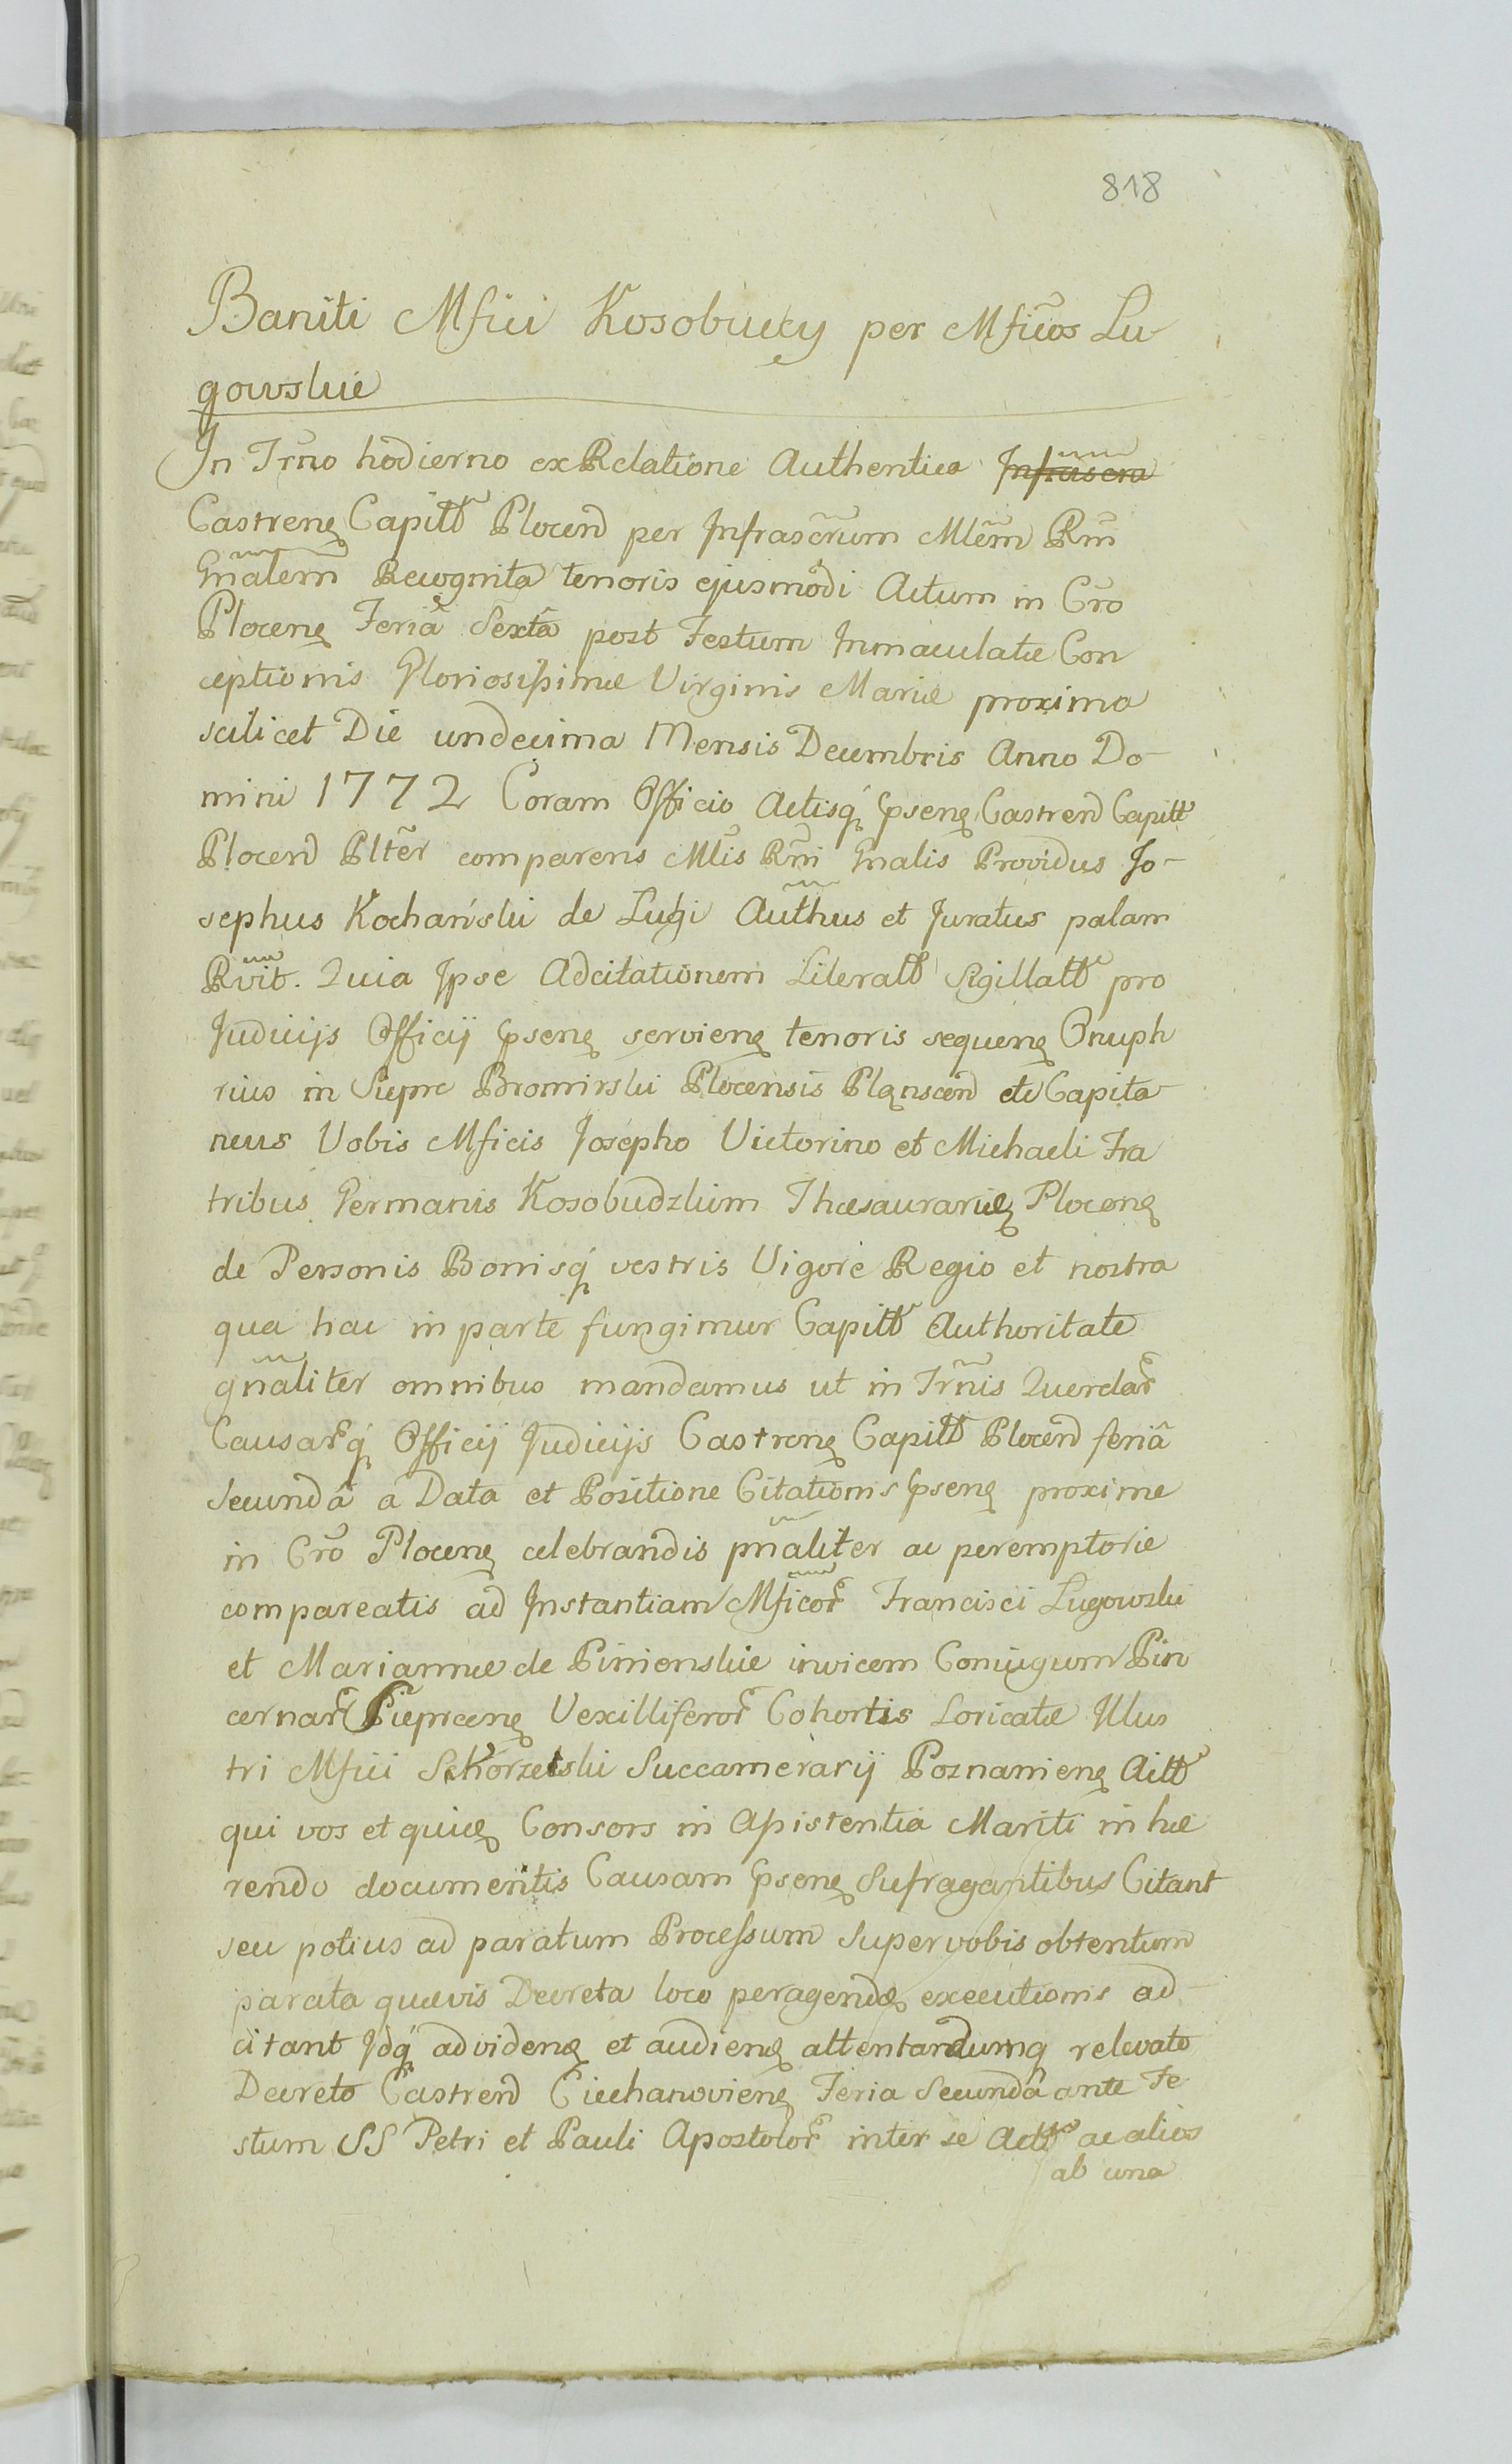 818
Baniti Mfici Kosobucky per Mficos Lu
gowskie
In Trno hodierno ex Relatione Authentica Infrascra
Castren Capitt Plocen per Infrascrum Mlem Rm
Gnalem Recognita tenoris ejusmodi Actum in Cro
Plocen Feria Sexta post Festum Immaculatæ Con
ceptionis Gloriosissimæ Virginis Mariæ proxima
scilicet Die undecima Mensis Decembris Anno Do-
mini 1772 Coram Officio Actisq psen Castren Capitt
Plocen Plter comparens Mlis Rni Gnalis Providus Jo-
sephus Kochański de Lugi Authus et Juratus palam
Rvit. Quia Ipse Adcitationem Literalt Sigillatt pro
Judicijs Officij psen servien tenoris sequen Onuph
rius in Siepre Bromirski Plocensis Plnscen etc Capita
neus Vobis Mficis Josepho Victorino et Michaeli Fra
tribus Germanis Kosobudzkim Thæsaurariæ Plocen
de Personis Bonisq vestris Vigore Regio et nostra
qua hac in parte fungimur Capitt Authoritate
gnaliter omnibus mandamus ut in Trnis Querelar
Causarq Officij Judicijs Castren Capitt Plocen feria
Secunda a Data et Positione Citationis psen proxime
in Cro Plocen celebrandis pnaliter ac peremptorie
compareatis ad Instantiam Mficor Francisci Lugowski
et Mariannæ de Pinienskie invicem Conjugum Pin
cernar Sieprcen Vexilliferor Cohortis Loricatæ Illus
tri Mfici Skorzewski Succamerarij Poznanien Aitt
qui vos et quidem Consors in Assistentia Mariti in hæ
rendo documentis Causam psen Sufragantibus Citant
seu potius ad paratum Processum Super vobis obtentum
parata quævis Decreta loco peragendæ executionis ad-
citant Idq ad viden et audien attentandumq relevato
Decreto Castren Ciechanovien Feria Secunda ante Fe
stum SS Petri et Pauli Apostolor inter se Actt ac alios
ab una